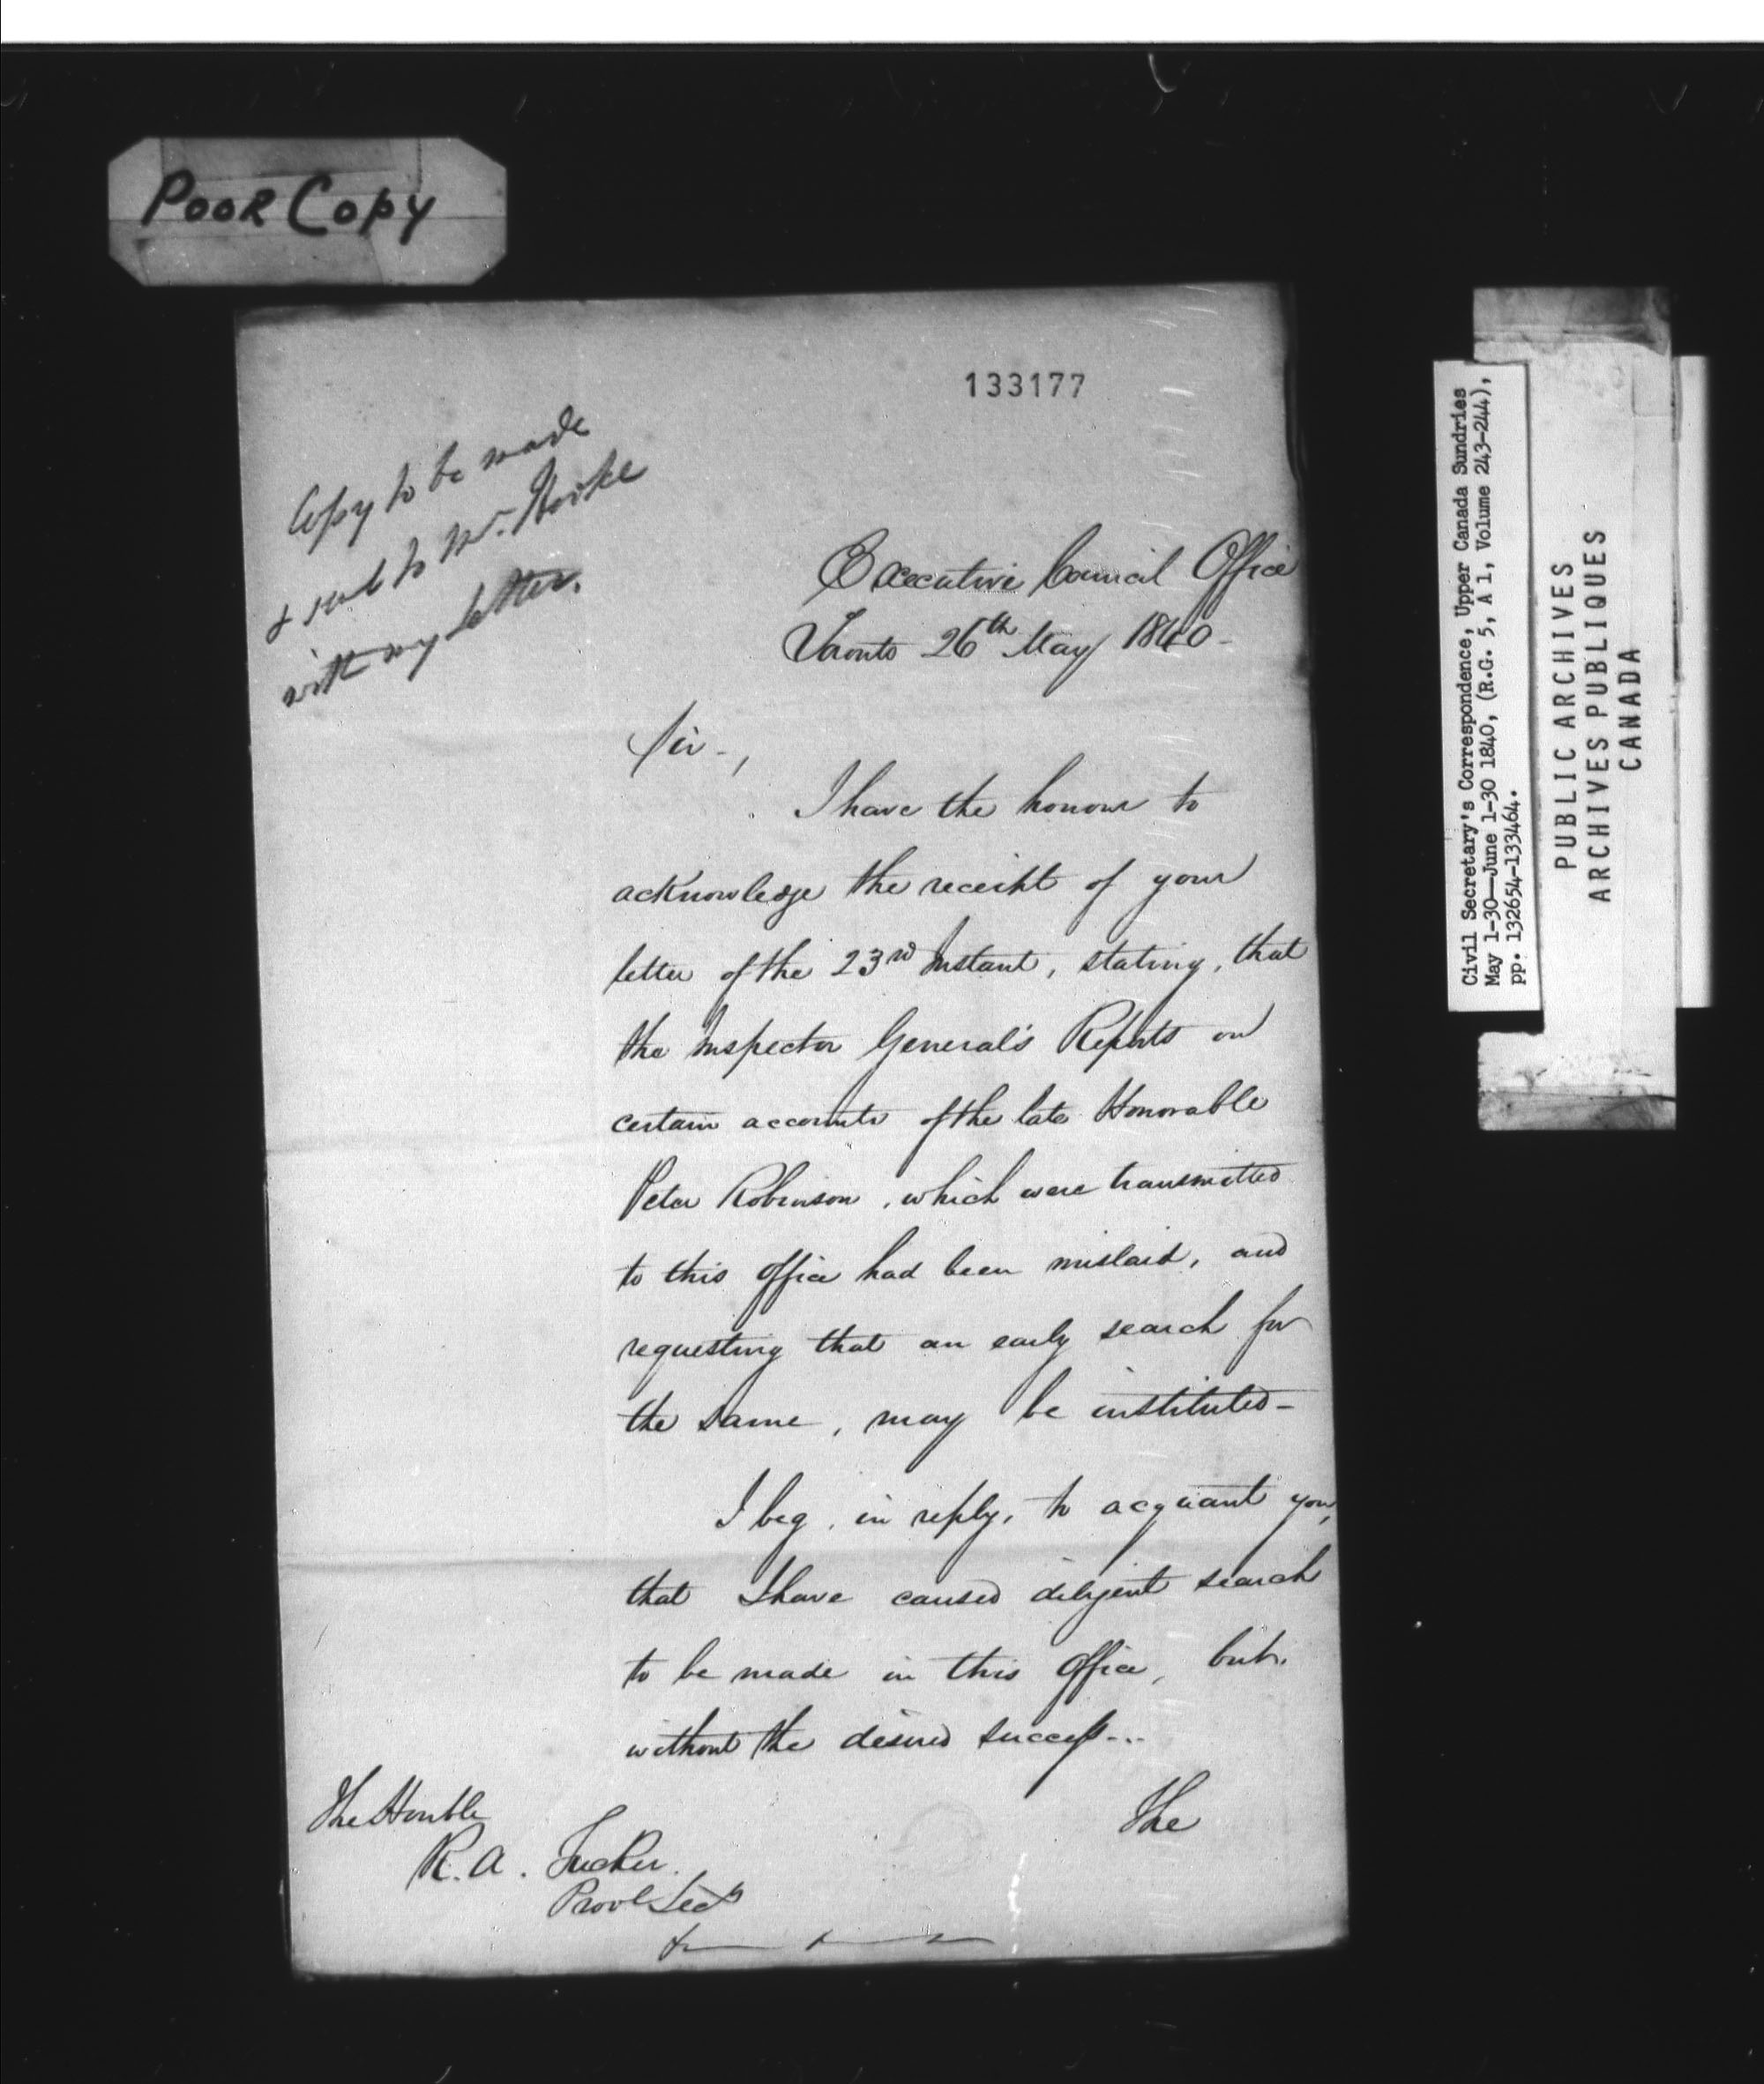 Poor Copy
133177
Copy to be made
& sent to Mr.
with my letter.
Executive Council Office
Toronto 26th May 1840 -
Sir -,
I have the honour to
acknowledge the receipt of your
letter of the 23rd Instant, stating, that
the Inspector General's Reports on
certain accounts of the late Honorable
Peter Robinson, which were transmitted
to this Office had been mislaid, and
requesting that an early search for
the same, may be instituted -
I beg, in reply, to acquiant you,
that I have caused diligent search
to be made in this Office, but.
without the desired success...
The
The Honble
R. A. Tucker.
Provl Secy
Civil Secretary's Correspondence, Upper Canada Sundries
May 1-30—June 1-30 1840, (R.G. 5, A 1, Volume 243-244),
pp. 132654-133464.
PUBLIC ARCHIVES
ARCHIVES PUBLIQUES
CANADA